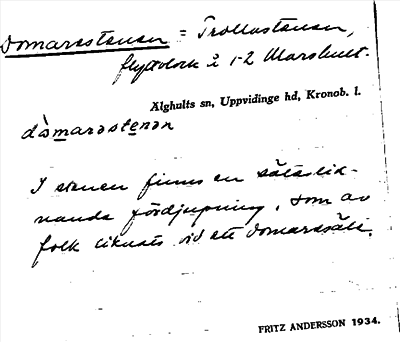 Domarestenen = Trollastenen,
flyttblock å 1-2 Marshult.
Älghults sn, Uppvidinge hd, Kronob. l.
dòmarəstenən
I stenen finns en sätelik-
nande fördjupning, som av
folk liknats vid ett domaresäte.
FRITZ ANDERSSON 1934.